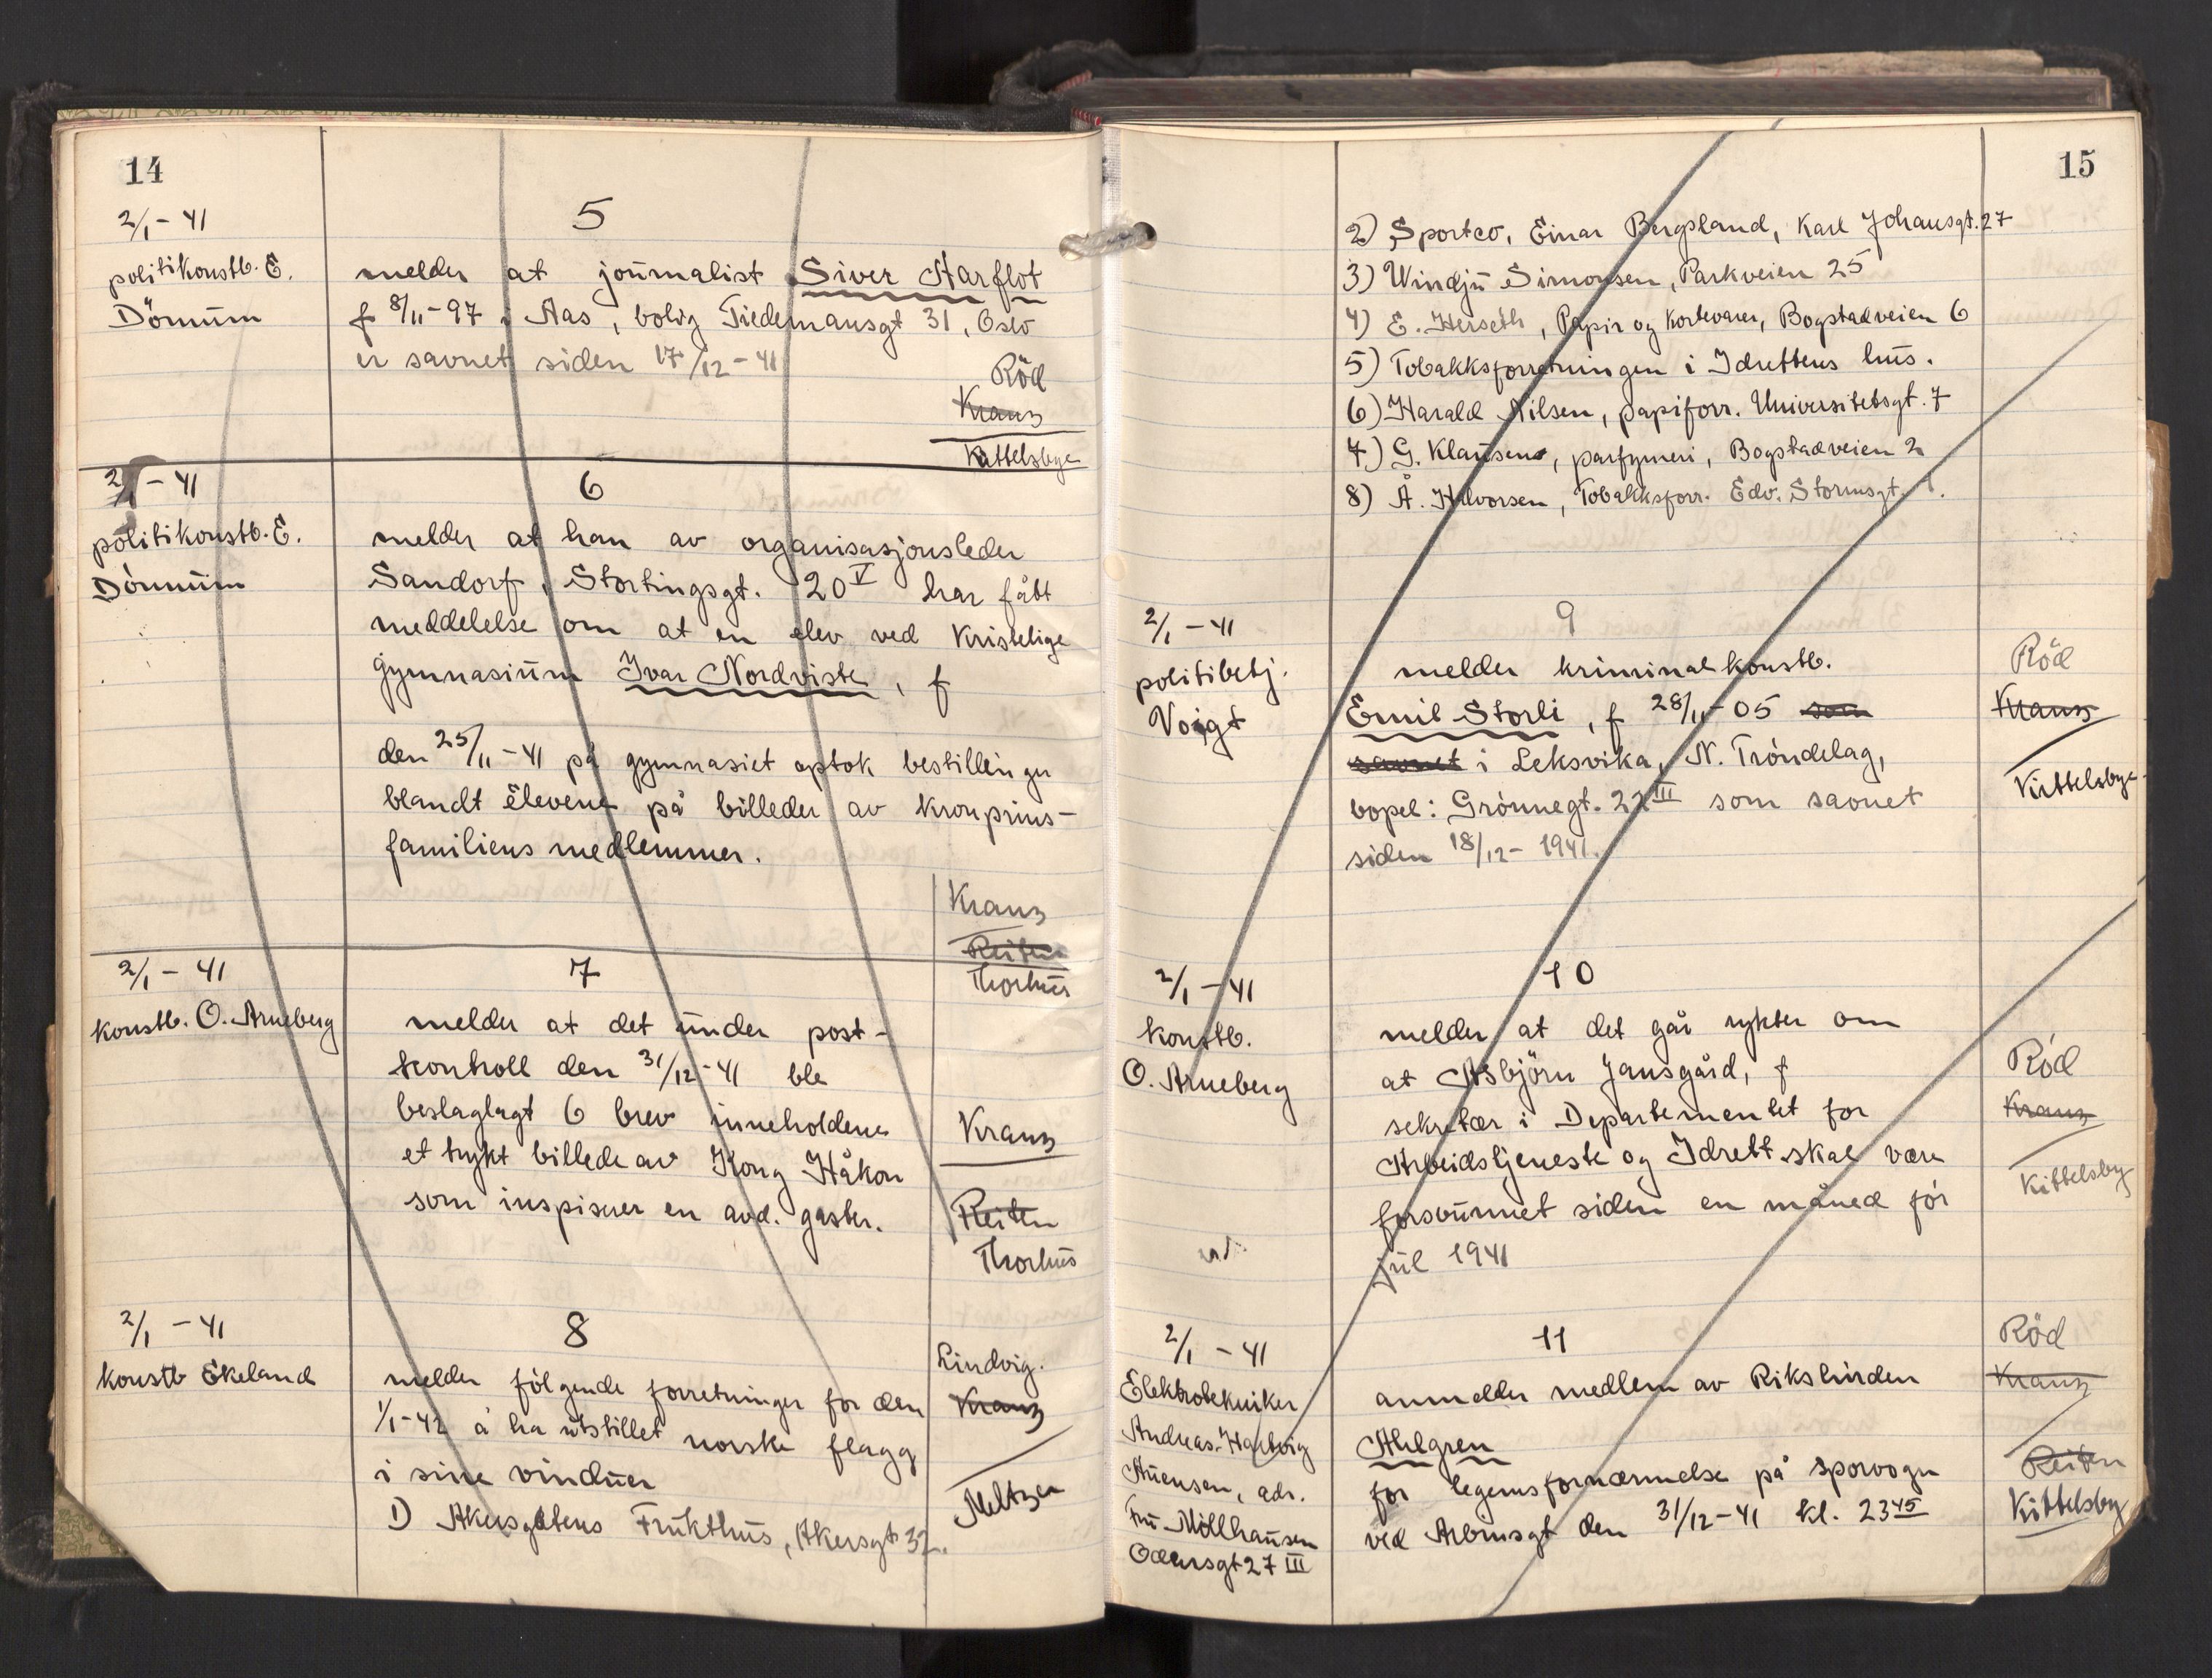 14
2/1 - 41
politikonstb. E.
Dönnum
5
melder at journalist Siver Harflot
f 8/11-97 i Aas, bolig Tiedemansgt 31, Oslo
er savnet siden 17/12-41
Röd
Kranz
Kittelsbye
2/1 - 41
politikonstb. E.
Dönnum
6
melder at han av organisasjonsleder
Sandorf, Stortingsgt. 20 V har fått
meddelelse om at en elev ved Kristelige
gymnasium Ivar Nordviste, f
den 25/11-41 på gymnasiet optok bestillinger
blandt elevene på billeder av kronprins-
familiens medlemmer.
Kranz
Reiten
Thorhus
2/1 - 41
konstb. O. Arneberg
7
melder at det under post-
kontroll den 31/12-41 ble
beslaglagt 6 brev inneholdene
et trykt billede av Kong Håkon
som inspiserer en avd. gaster.
Kranz
Reiten
Thorhus
2/1 - 41
konstb Ekeland
8
melder fölgende forretninger for den
1/1-42 å ha utstillet norske flagg
i sine vinduer
1) Akersgatens Frukthus, Akersgt 32.
Lindvig.
Kranz
Meltzer
15
2) Sportco, Einar Bergsland, Karl Johansgt. 27
3) Windju Simonsen, Parkveien 25
4) E. Herseth, Papir og Kortevarer, Bogstadveien 6
5) Tobakksforretningen i Idrettens hus.
6) Harald Nilsen, papiforr. Universitetsgt. 7
7) G. Klausens, parfymeri, Bogstadveien 2
8) Å. Halvorsen, Tobakksforr. Edv. Stormsgt. 1.
2/1 - 41
politibetj.
Voigt
9
melder kriminalkonstb.
Emil Storli, f 28/11-05 som
savnet i Leksvika, N. Tröndelag,
bopel: Grönnegt. 22 III som savnet
siden 18/12-1941.
Röd
Kranz
Kittelsbye
2/1 - 41
konstb.
O. Arneberg
10
melder at det går rykter om
at Asbjörn Jansgård, f
sekretær i Departementet for
Arbeidstjeneste og Idrett skal være
forsvunnet siden en måned för
jul 1941
Röd
Kranz
Kittelsby
2/1 - 41
Elektrotekniker
Andreas Hartvig
Auensen, adr.
Fru Möllhausen
Odensgt 27 III
11
anmelder medlem av Rikshirden
Ahlgren
for legemsfornærmelse på sporvogn
ved Arbinsgt den 31/12-41 kl. 23 45
Röd
Kranz
Reiten
Kittelsby